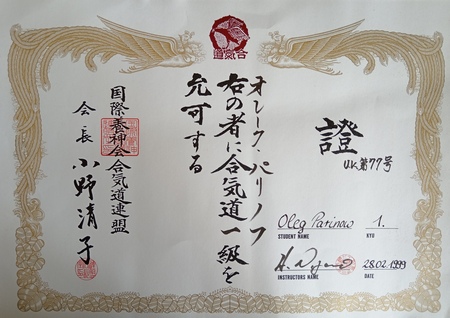 合氣道
證
U.K. 第77号
オレーク・パリノフ
右の者に合気道一級を
允可する
国際養神会合気道連盟
会長 小野清子
Oleg Parinow 1.
STUDENT NAME KYU
28.02.1999
INSTRUCTORS NAME DATE